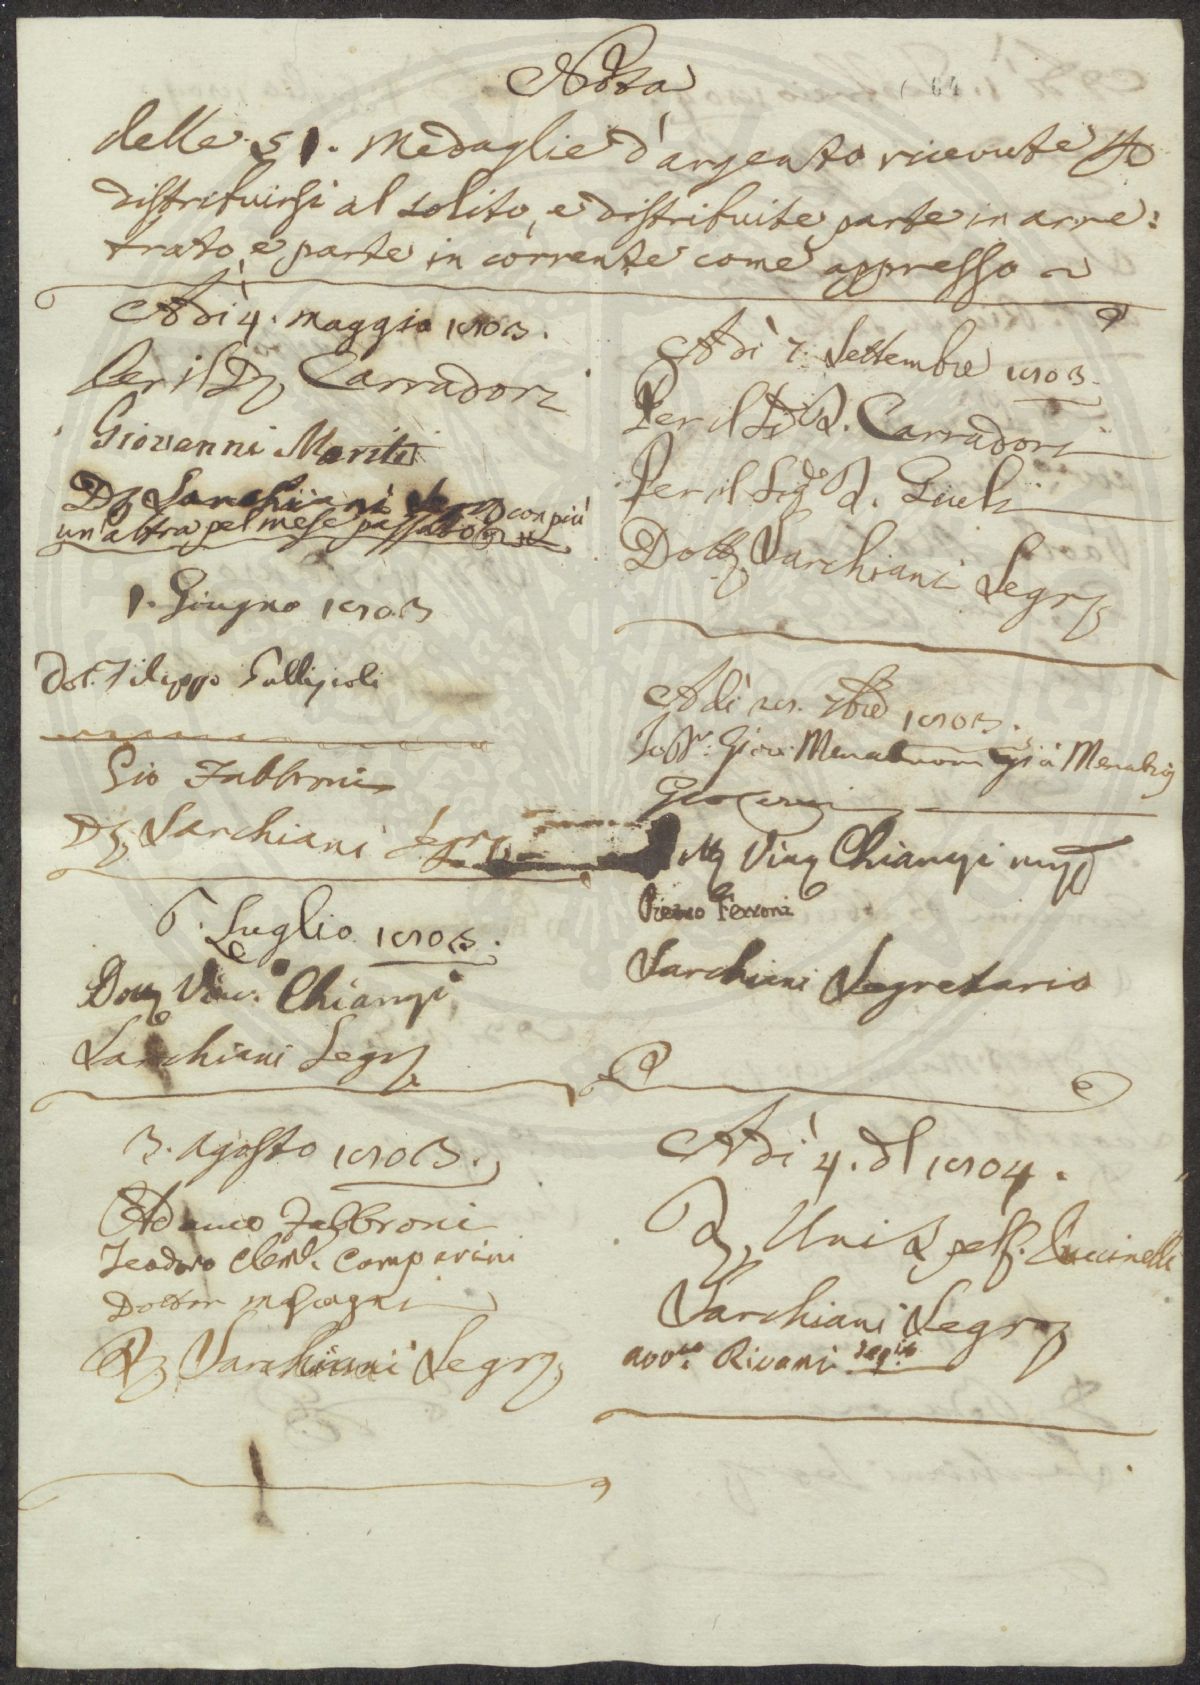 Nota
64
delle 51. Medaglie d'argento ricevute
distribuirsi al solito, e distribuite parte in arre:
trato, e parte in corrente come appresso
Adì 4. maggio 1803.
Per il D. Carradori
Giovanni Mariti
D. Sarchiani Segr. con più
un'altra pel mese passato
1. Giugno 1803
Dot. Filippo Gallizioli
Gio Fabbroni
D. Sarchiani Segr.
6. Luglio 1803.
Dott Vinc. Chiarugi
Sarchiani Segr.
3. Agosto 1803.
Adamo Fabbroni
Teodoro Clem. Comparini
Dottor
D. Sarchiani Segr.
Adì 7. Settembre 1803.
Per il Sig. D. Carradori
Per il Sig. D.
Dott. Sarchiani Segr.
Adì 28. 7bre 1803.
Giov. Menabuoni già
Dott Vinc Chiarugi
Pietro Ferroni
Sarchiani Segretario
Adì 4. 1804.
Per Uni D. Luccinelli
Sarchiani Segr.
Avv. Rivani